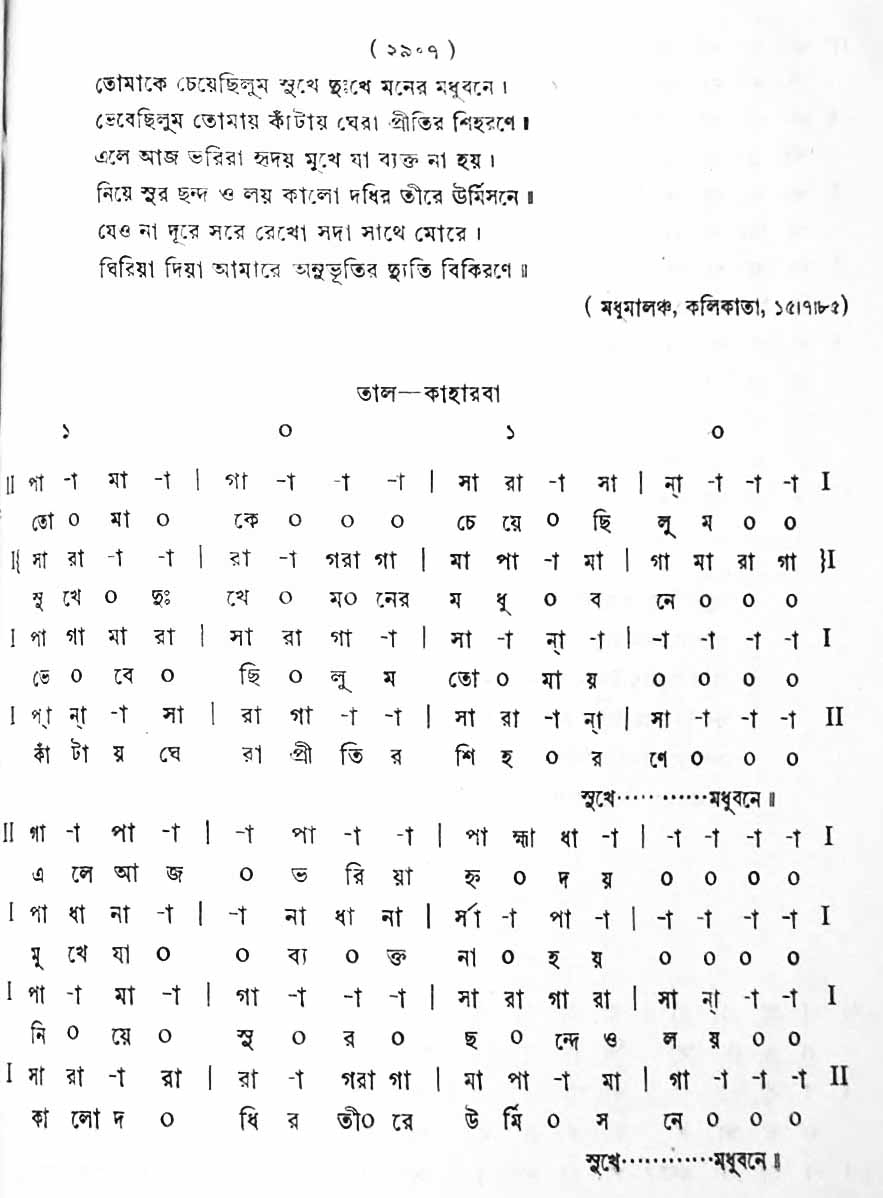 ( ২৯০৭ )
তোমাকে চেয়েছিলুম সুখে দুঃখে মনের মধুবনে ।
ভেবেছিলুম তোমায় কাঁটায় ঘেরা প্রীতির শিহরণে ॥
এলে আজ ভরিরা হৃদয় মুখে যা ব্যক্ত না হয় ।
নিয়ে সুর ছন্দ ও লয় কালো দধির তীরে ঊর্মিসনে ॥
যেও না দূরে সরে রেখো সদা সাথে মোরে ।
ঘিরিয়া দিয়া আমারে অনুভূতির দ্যুতি বিকিরণে ॥
( মধুমালঞ্চ, কলিকাতা, ১৫।৭।৮৫)
তাল—কাহারবা
১ ০ ১ ০
II পা -া মা -া | গা -া -া -া | সা রা -া সা | ন্া -া -া -া I
তো ০ মা ০ কে ০ ০ ০ চে য়ে ০ ছি লু ম ০ ০
I{ সা রা -া -া | রা -া গরা গা | মা পা -া মা | গা মা রা গা }I
সু খে ০ দুঃ খে ০ ম০ নের ম ধু ০ ব নে ০ ০ ০
I পা গা মা রা | সা রা গা -া | সা -া ন্া -া | -া -া -া -া I
ভে ০ বে ০ ছি ০ লু ম তো ০ মা য় ০ ০ ০ ০
I প্া ন্া -া সা | রা গা -া -া | সা রা -া ন্া | সা -া -া -া II
কাঁ টা য় ঘে রা প্রী তি র শি হ ০ র ণে ০ ০ ০
সুখে············মধুবনে ॥
II গা -া পা -া | -া পা -া -া | পা হ্মা ধা -া | -া -া -া -া I
এ লে আ জ ০ ভ রি য়া হৃ ০ দ য় ০ ০ ০ ০
I পা ধা না -া | -া না ধা না | র্সা -া পা -া | -া -া -া -া I
মু খে যা ০ ০ ব্য ০ ক্ত না ০ হ য় ০ ০ ০ ০
I পা -া মা -া | গা -া -া -া | সা রা গা রা | সা ন্া -া -া I
নি ০ য়ে ০ সু ০ র ০ ছ ০ ন্দে ও ল য় ০ ০
I সা রা -া রা | রা -া গরা গা | মা পা -া মা | গা -া -া -া II
কা লো দ ০ ধি র তী০ রে উ র্মি ০ স নে ০ ০ ০
সুখে············মধুবনে ॥